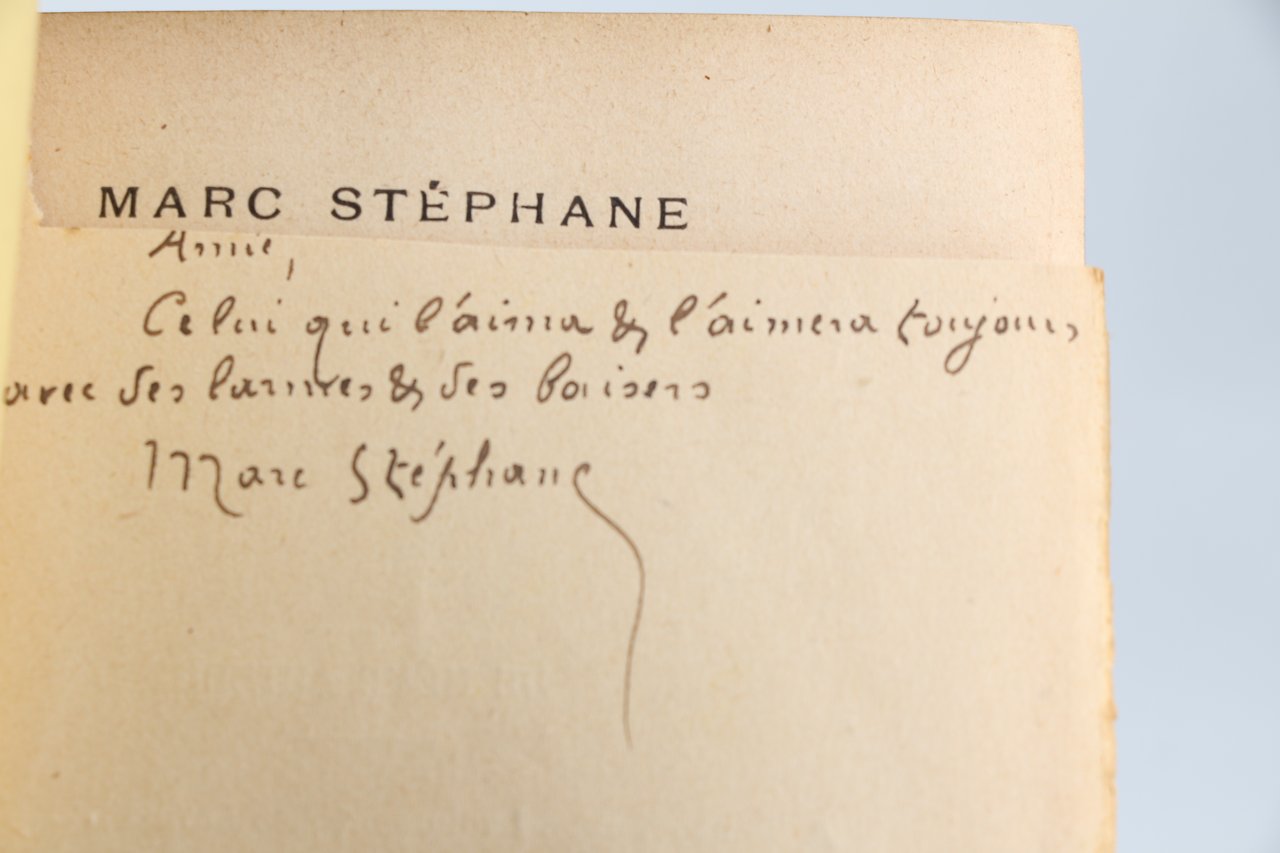 MARC STÉPHANE
Amie,
Celui qui l'aima & l'aimera toujours
avec des larmes & des baisers
Marc Stéphane